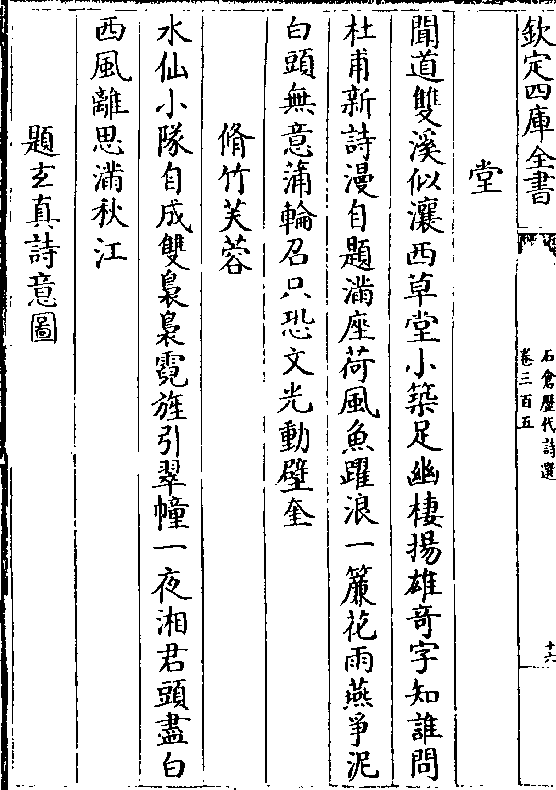 欽定四庫全書
石倉歷代詩選
卷三百五
十六
堂
聞道雙溪似瀼西草堂小築足幽棲揚雄奇字知誰問
杜甫新詩漫自題滿座荷風魚躍浪一簾花雨燕爭泥
白頭無意蒲輪召只恐文光動壁奎
脩竹芙蓉
水仙小隊自成雙裊裊霓旌引翠幢一夜湘君頭盡白
西風離思滿秋江
題玄真詩意圖